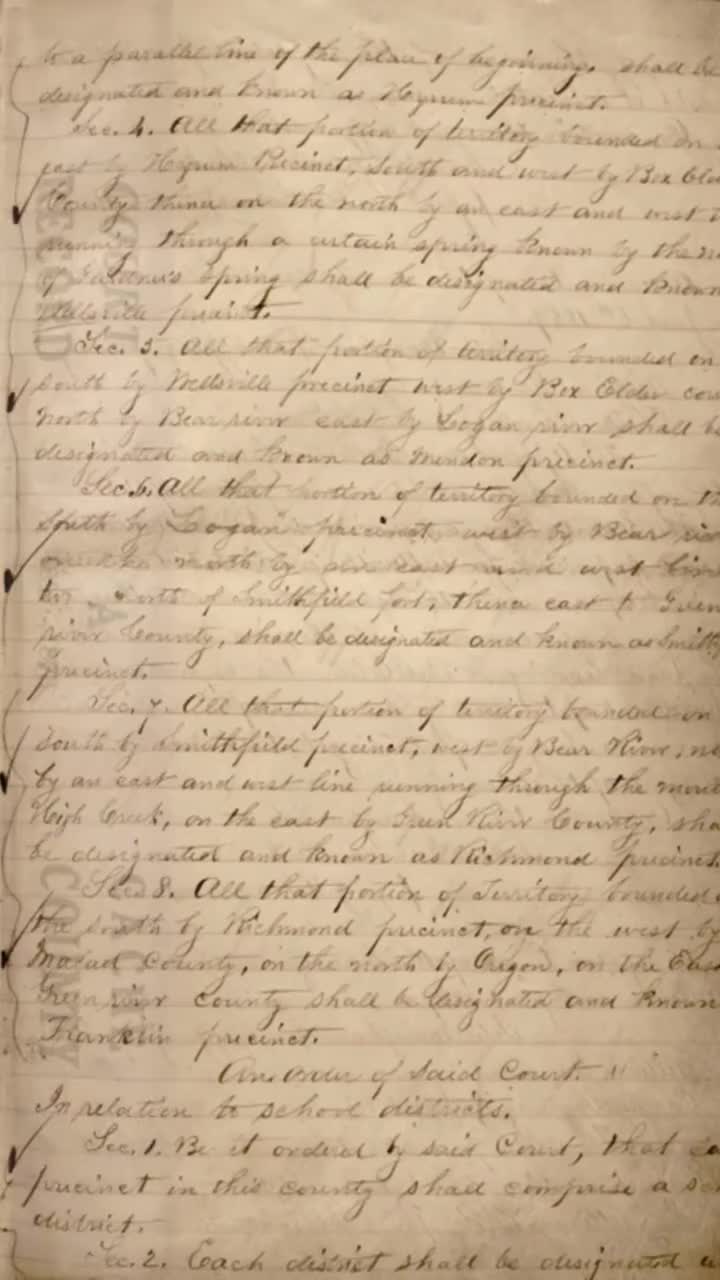 to a parallel line of the place of beginning, shall be
designated and known as Hyrum precinct.
Sec. 4. All that portion of territory bounded on
east by Hyrum Precinct, South and west by Box Elde
County thence on the north by an east and west
running through a certain spring known by the
of Gardner's Spring shall be designated and known
Wellsville precinct.
Sec. 5. All that portion of territory bounded on
south by Wellsville precinct west by Box Elder cou
North by Bear river east by Logan river shall be
designated and known as Mendon precinct.
Sec. 6. All that portion of territory bounded on th
South by Logan precinct, west by Bear riv
on the north by an east and west line
north of Smithfield fort, thence east to Green
river County, shall be designated and known as Smithf
Precinct.
Sec. 7. All that portion of territory bounded on
South by Smithfield precinct, west by Bear River, no
by an east and west line running through the mout
High Creek, on the east by Green River County, sha
be designated and known as Richmond precinct.
Sec. 8. All that portion of Territory bounded
the south by Richmond precinct, on the west by
Malad County, on the north by Oregon, on the Eas
Green river county shall be designated and known
Franklin precinct.
An order of said Court.
In relation to school districts.
Sec. 1. Be it ordered by said Court, that ea
precinct in this county shall comprise a sc
district.
Sec. 2. Each district shall be designated a